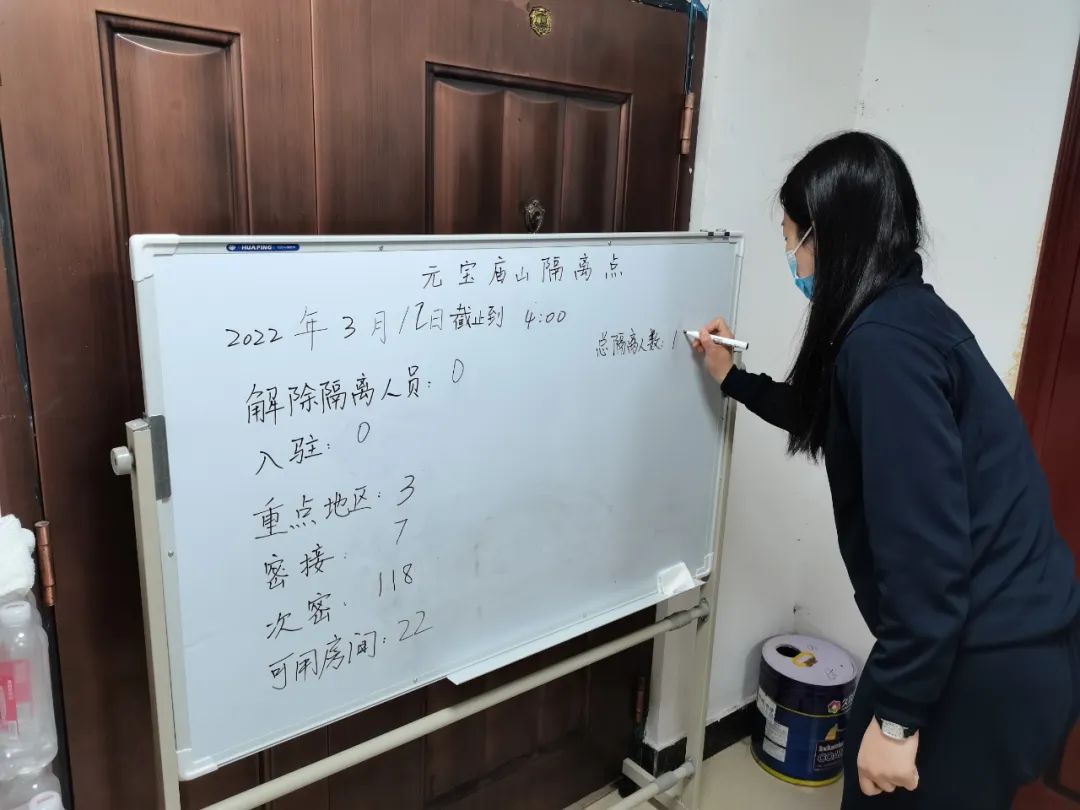 HUAPING
元宝庙山隔离点
2022年3月12日截止到 4:00
总隔离人数: 1
解除隔离人员: 0
入驻: 0
重点地区: 3
密接: 7
次密: 118
可用房间: 22
Industrial